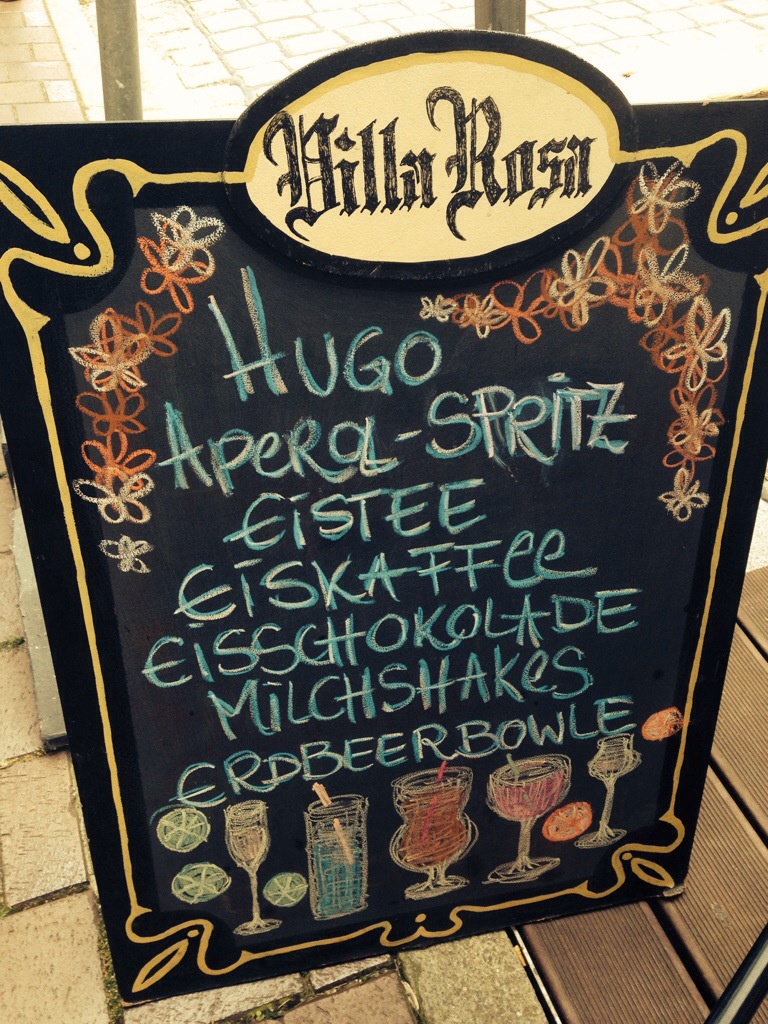 Villa Rosa
HUGO
APEROL-SPRITZ
EISTEE
EISKAFFEE
EISSCHOKOLADE
MILCHSHAKES
ERDBEERBOWLE